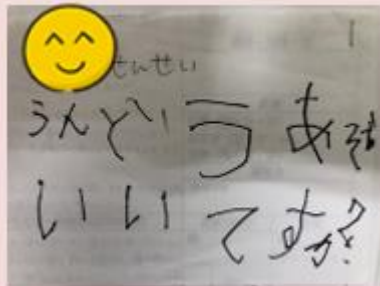 せんせい
うんどう あそ
いいてすか?